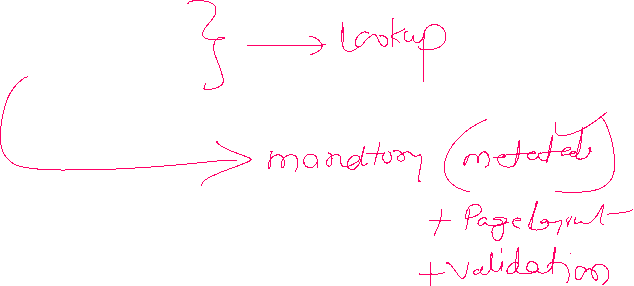 } → Lookup
mandtory (metated)
+ Page layout
+ Validation